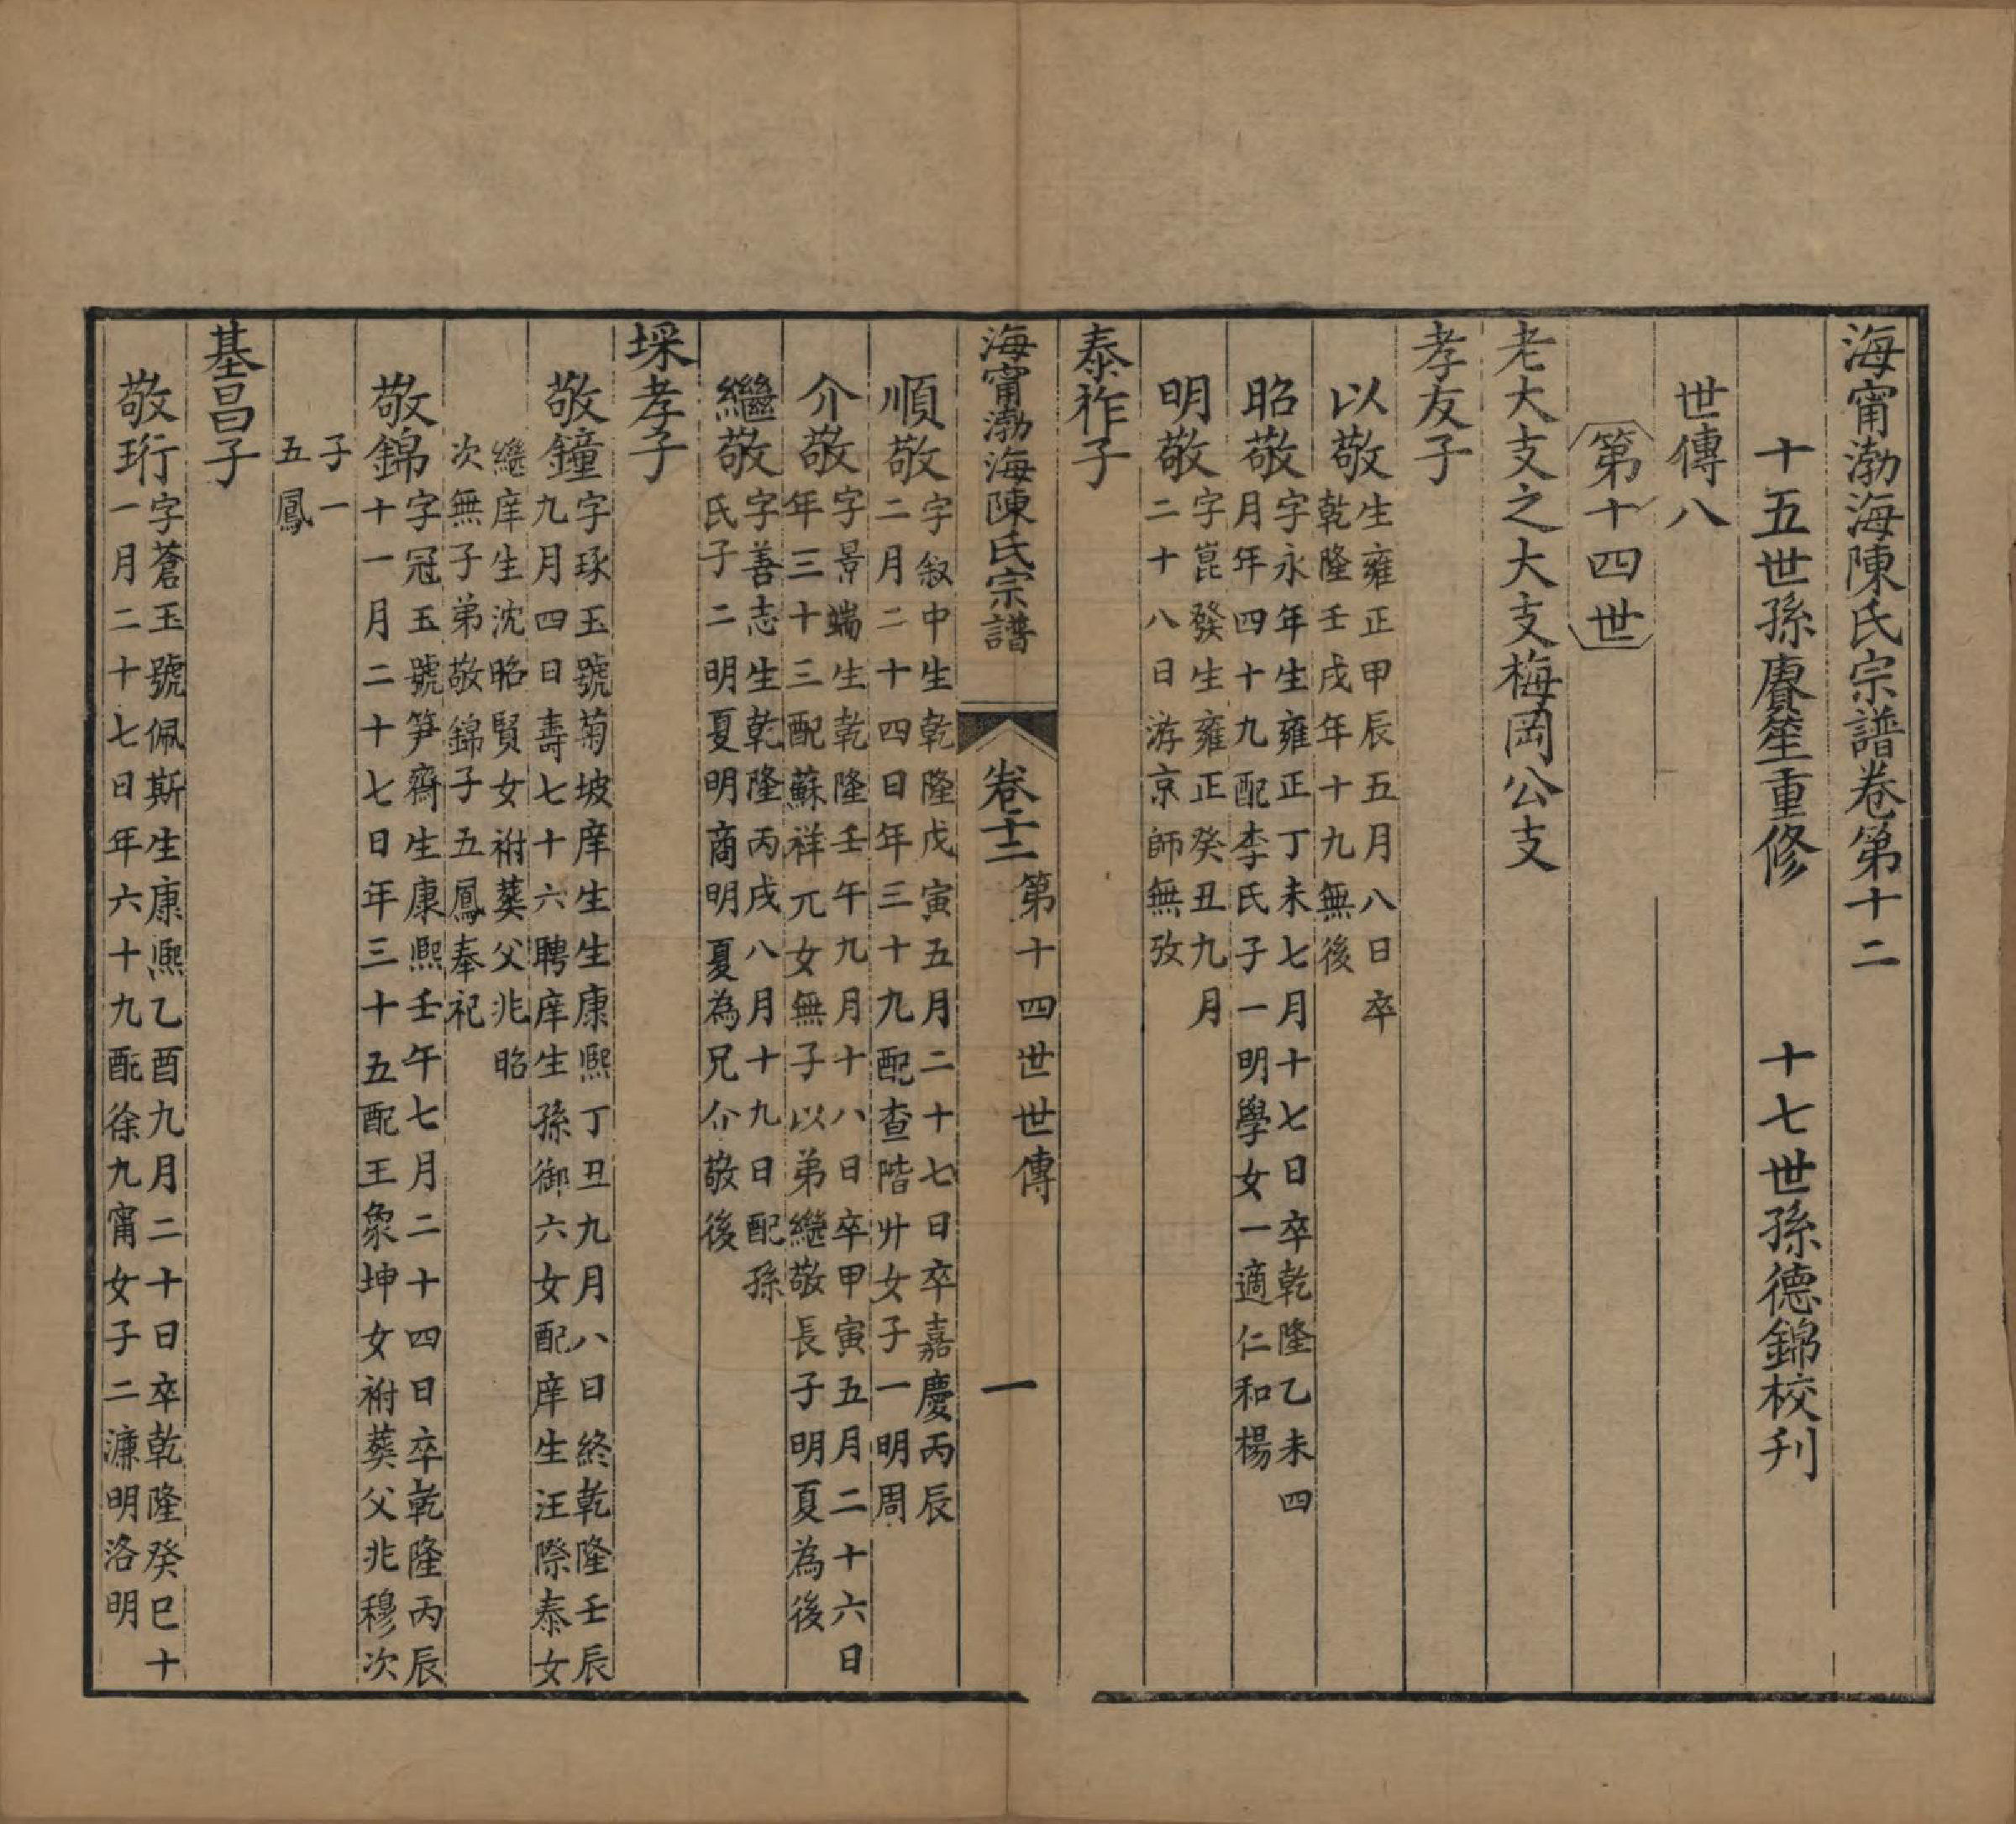 海甯渤海陳氏宗譜卷第十二
十五世孫賡笙重修　十七世孫德錦校刊
世傳八
第十四世
老大支之大支梅岡公支
孝友子
以敬生雍正甲辰五月八日卒
乾隆壬戌年十九無後
昭敬字永年生雍正丁未七月十七日卒乾隆乙未四
月年四十九配李氏子一明學女一適仁和楊
明敬字崑發生雍正癸丑九月
二十八日游京師無攷
泰祚子
海甯渤海陳氏宗譜
卷十二
第十四世世傳
一
順敬字叙中生乾隆戊寅五月二十七日卒嘉慶丙辰
二月二十四日年三十九配查階廾女子一明周
介敬字景端生乾隆壬午九月十八日卒甲寅五月二十六日
年三十三配蘇祥元女無子以弟繼敬長子明夏為後
繼敬字善志生乾隆丙戌八月十九日配孫
氏子二明夏明商明夏為兄介敬後
埰孝子
敬鐘字琢玉號菊坡庠生生康熙丁丑九月八日終乾隆壬辰
九月四日壽七十六聘庠生孫御六女配庠生汪際泰女
繼庠生沈昭賢女祔葬父兆昭
次無子弟敬錦子五鳳奉祀
敬錦字冠玉號笋齋生康熙壬午七月二十四日卒乾隆丙辰
十一月二十七日年三十五配王象坤女祔葬父兆穆次
子一
五鳳
基昌子
敬珩字蒼玉號佩斯生康熙乙酉九月二十日卒乾隆癸巳十
一月二十七日年六十九配徐九甯女子二濂明洛明